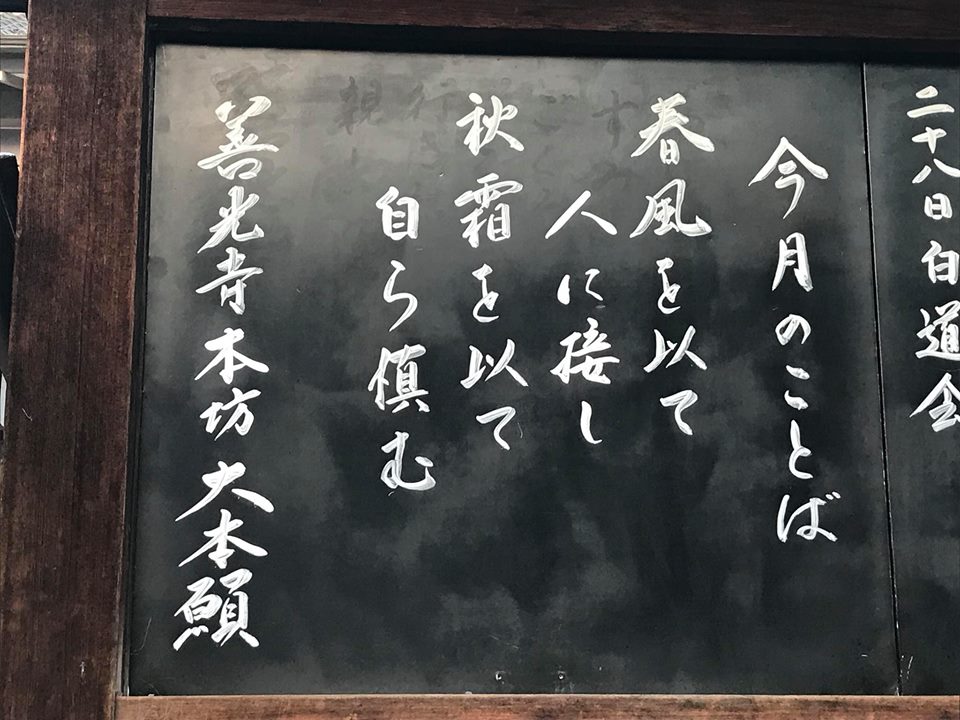 二十八日白道会
今月のことば
春風を以て
人に接し
秋霜を以て
自ら慎む
善光寺本坊 大本願